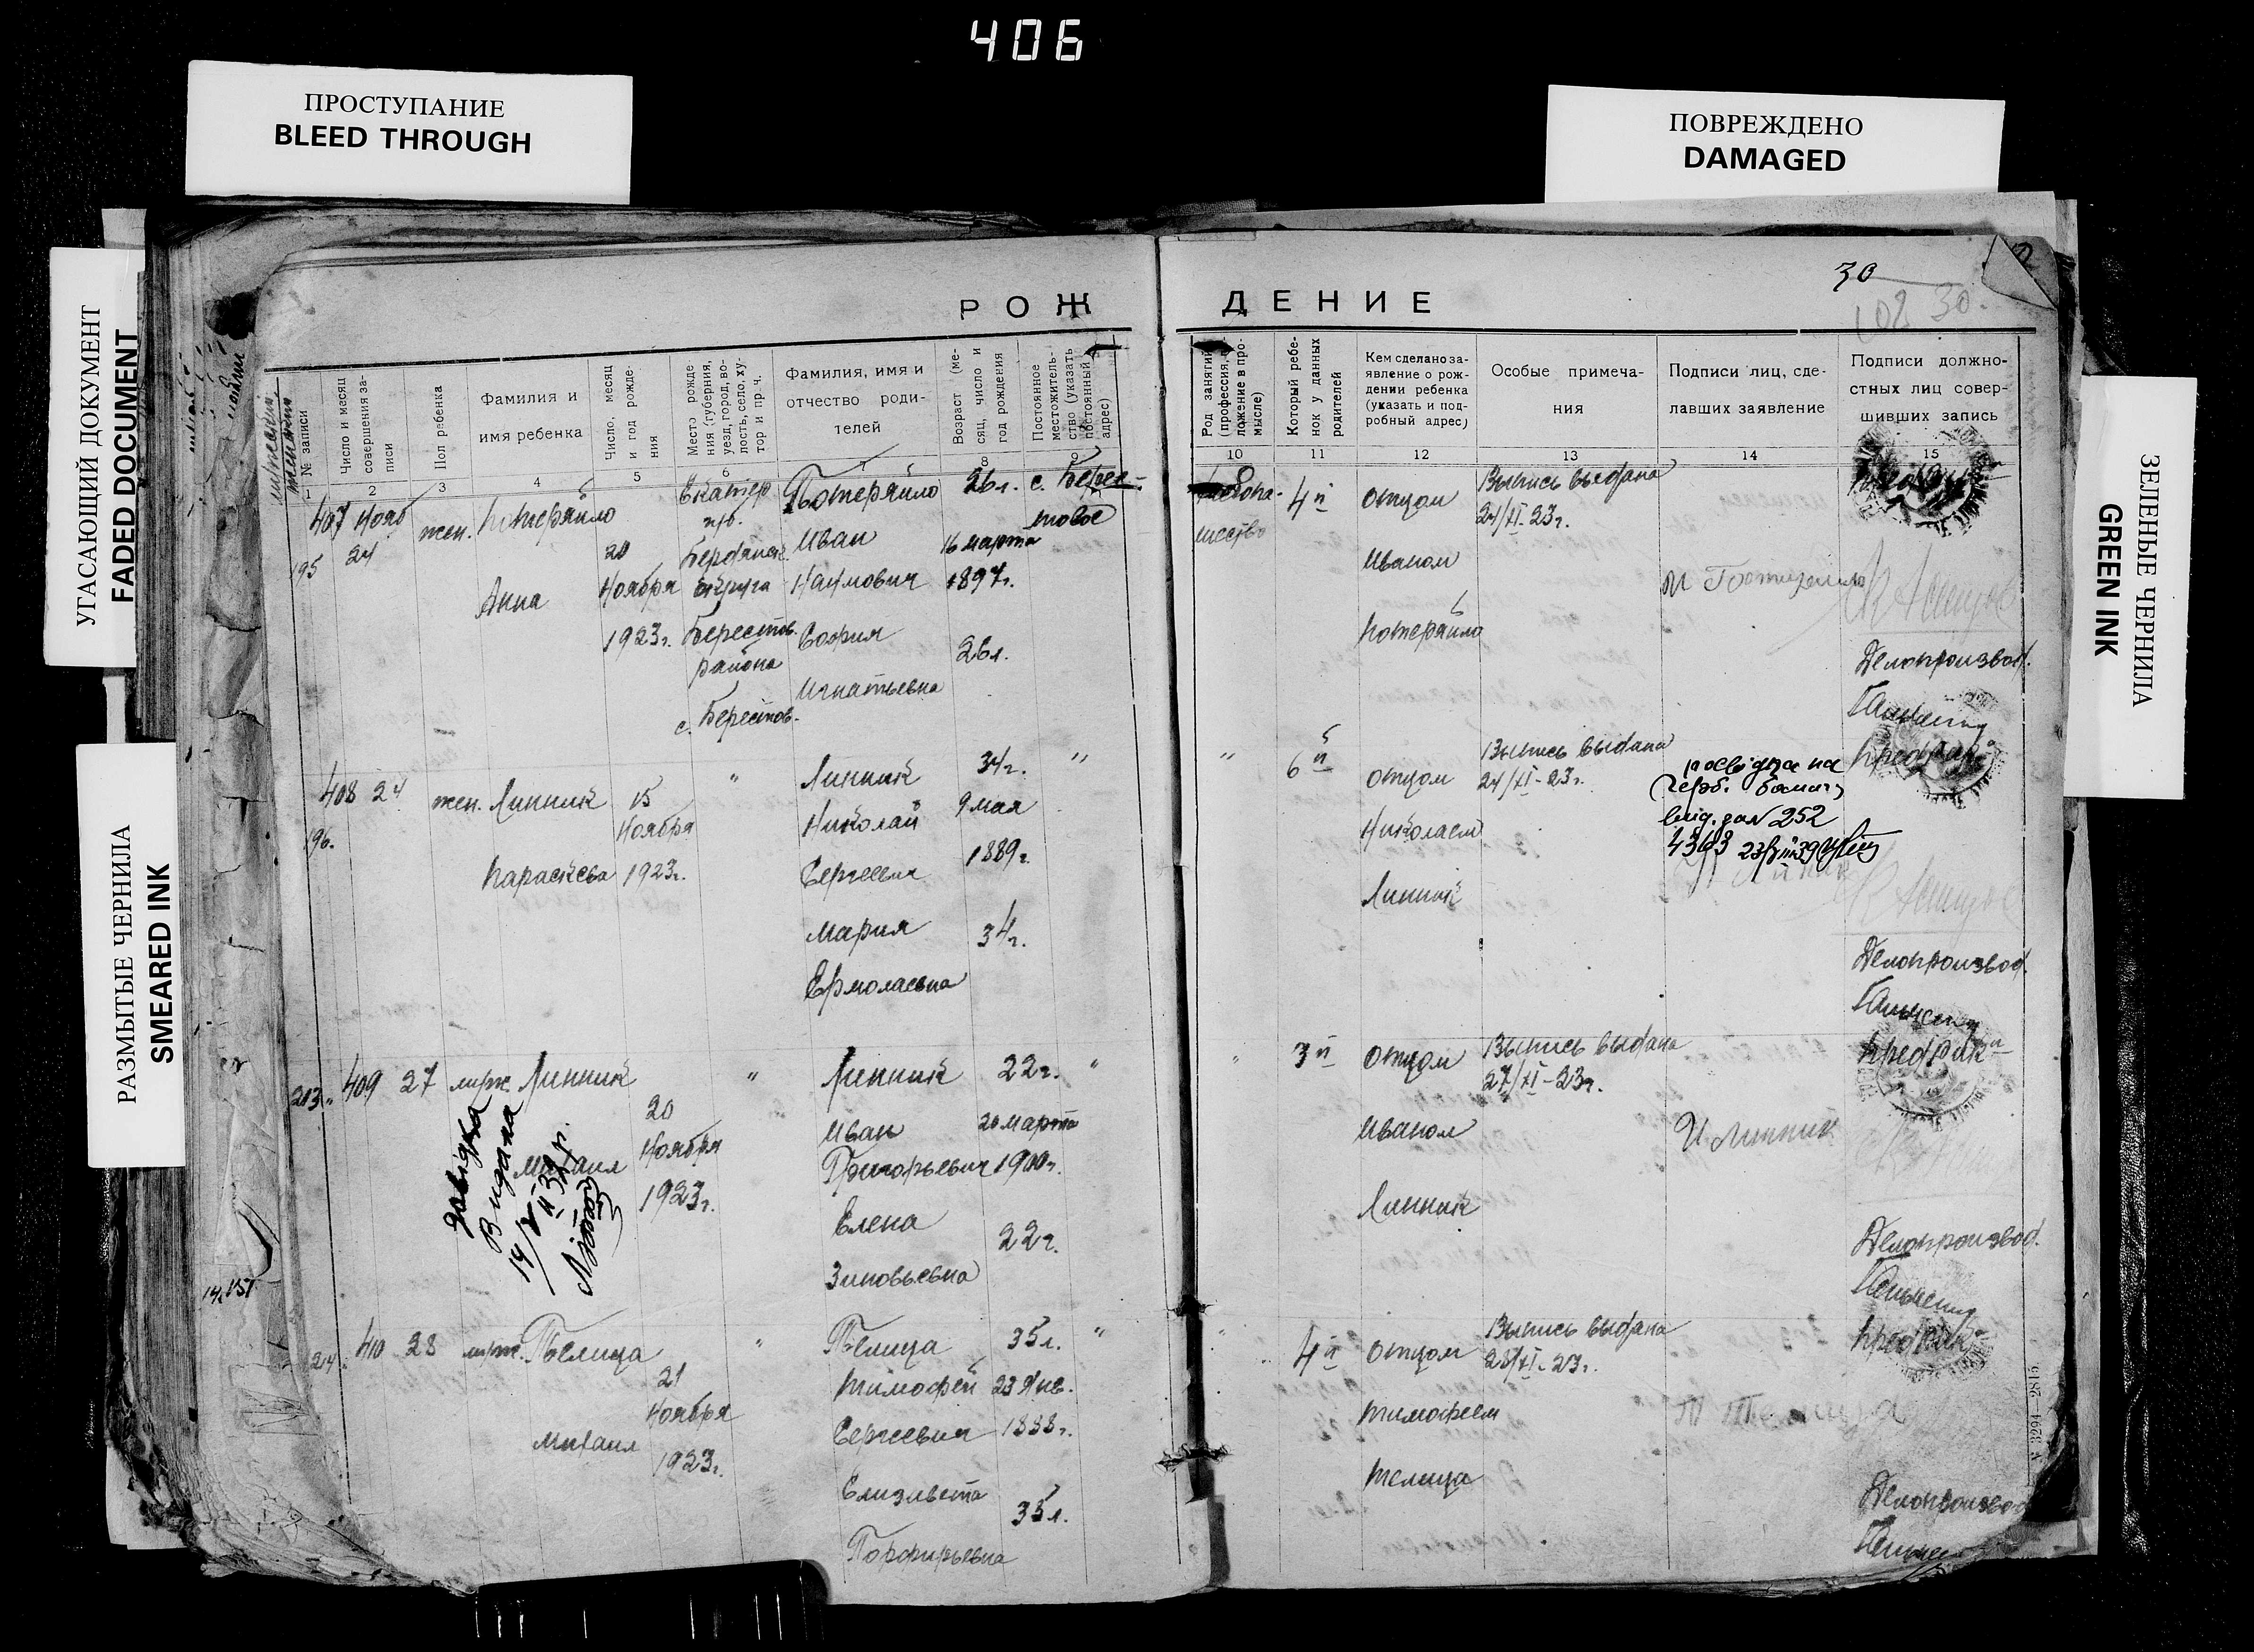 406
ПРОСТУПАНИЕ
BLEED THROUGH
ПОВРЕЖДЕНО
DAMAGED
УГАСАЮЩИЙ ДОКУМЕНТ
FADED DOCUMENT
РАЗМЫТЫЕ ЧЕРНИЛА
SMEARED INK
ЗЕЛЕНЫЕ ЧЕРНИЛА
GREEN INK
30
102 30.
РОЖДЕНИЕ
№ записи
Число и месяц
совершения за-
писи
Пол ребенка
Фамилия и
имя ребенка
Число, месяц
и год рожде-
ния
Место рожде-
ния (губерния,
уезд, город, во-
лость, село, ху-
тор и пр. ч.
Фамилия, имя и
отчество роди-
телей
Возраст (ме-
сяц, число и
год рождения
Постоянное
местожитель-
ство (указать
постоянный
адрес)
Род занятий
(профессия,
положение в про-
мысле)
Который ребе-
нок у данных
родителей
Кем сделано за-
явление о рож-
дении ребенка
(указать и под-
робный адрес)
Особые примеча-
ния
Подписи лиц, сде-
лавших заявление
Подписи должно-
стных лиц совер-
шивших запись
1 2 3 4 5 6 7 8 9 10 11 12 13 14 15
407 Нояб
24
195
жен.
Потеряйло
Анна
20
Ноября
1923г.
Екатер
губ.
Бердянск.
округа
Берестов.
района
с. Берестов.
Потеряйло
Иван
Наумович
София
Игнатьевна
26л.
16 марта
1897г.
26л.
с. Берес-
товое
4й
отцом
Иваном
Потеряйло
Выпись выдана
24/XI-23г.
Делопроизвод.
408 24
196.
жен.
Линник
Параскева
15
Ноября
1923г.
"
Линник
Николай
Сергеевич
Мария
Ермолаевна
34г.
9 мая
1889г.
34г.
"
"
6й
отцом
Николаем
Линник
Выпись выдана
24/XI-23г.
252
Предрик
Делопроизвод.
213.
409 27
муж.
Линник
Михаил
20
Ноября
1923г.
"
Линник
Иван
Григорьевич
Елена
Зиновьевна
22г.
20 марта
1900г.
22г.
"
"
3й
отцом
Иваном
Линник
Выпись выдана
27/XI-23г.
И Линник
Предрик
Делопроизвод.
Видана
214.
410 28
муж.
Телица
Михаил
21
Ноября
1923г.
"
Телица
Тимофей
Сергеевич
Елизавета
Порфирьевна
35л.
23 Янв.
1888г.
35л.
"
"
4й
отцом
Тимофеем
Телица
Выпись выдана
28/XI-23г.
Т Телица
Предрик
Делопроизвод